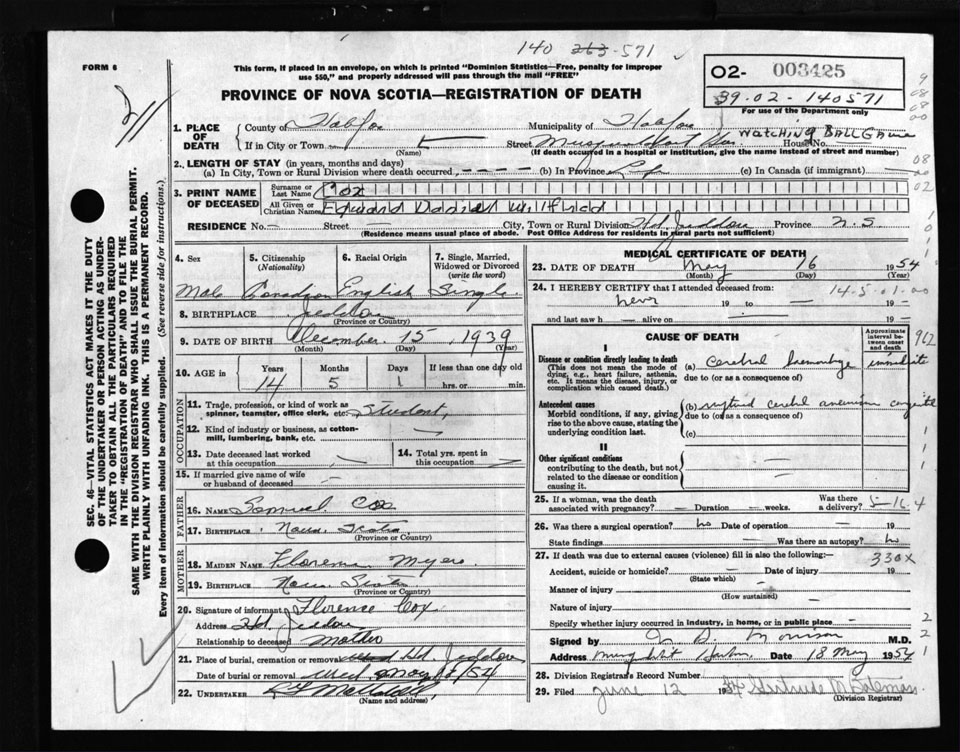 140 263-571
FORM 6
This form, if placed in an envelope, on which is printed "Dominion Statistics—Free, penalty for improper
use $50," and properly addressed will pass through the mail "FREE"
PROVINCE OF NOVA SCOTIA—REGISTRATION OF DEATH
O2- 003425
39.02-140571
For use of the Department only
211
1. PLACE OF DEATH
County of Halifax Municipality of Halifax
WATCHING BALL GAME
If in City or Town (Name) Street House No.
(If death occurred in a hospital or institution, give the name instead of street and number)
2. LENGTH OF STAY (in years, months and days)
(a) In City, Town or Rural Division where death occurred, - - - - (b) In Province Life (c) In Canada (if immigrant) —
3. PRINT NAME OF DECEASED
Surname or Last Name Cox
All Given or Christian Names Edward Daniel Willfried
RESIDENCE No. — Street — City, Town or Rural Division Hd. Jeddore Province N.S
(Residence means usual place of abode. Post Office Address for residents in rural parts not sufficient)
4. Sex
Male
5. Citizenship (Nationality)
Canadian
6. Racial Origin
English
7. Single, Married, Widowed or Divorced (write the word)
Single
8. BIRTHPLACE Jeddore
(Province or Country)
9. DATE OF BIRTH December 15, 1939
(Month) (Day) (Year)
10. AGE in Years Months Days If less than one day old
14 5 1 hrs. or min.
OCCUPATION
11. Trade, profession, or kind of work as spinner, teamster, office clerk, etc. Student,
12. Kind of industry or business, as cotton-mill, lumbering, bank, etc. —
13. Date deceased last worked at this occupation —
14. Total yrs. spent in this occupation —
15. If married give name of wife or husband of deceased —
FATHER
16. NAME Samuel Cox
17. BIRTHPLACE Nova Scotia
(Province or Country)
MOTHER
18. MAIDEN NAME Florence Myers
19. BIRTHPLACE Nova Scotia
(Province or Country)
20. Signature of informant Florence Cox
Address Hd. Jeddore
Relationship to deceased Mother
21. Place of burial, cremation or removal Hd Jeddore
Date of burial or removal May /54
22. UNDERTAKER
(Name and address)
MEDICAL CERTIFICATE OF DEATH
23. DATE OF DEATH May 16 1954
(Month) (Day) (Year)
24. I HEREBY CERTIFY that I attended deceased from: 14-5-01-00
never 19 to — 19 —
and last saw h alive on — 19 —
CAUSE OF DEATH
Approximate interval between onset and death
962
I
Disease or condition directly leading to death
(This does not mean the mode of dying, e.g., heart failure, asthenia, etc. It means the disease, injury, or complication which caused death.)
(a) Cerebral hemorrhage immediate
due to (or as a consequence of)
Antecedent causes
Morbid conditions, if any, giving rise to the above cause, stating the underlying condition last.
(b) ruptured cerebral aneurism congenital
due to (or as a consequence of)
(c)
II
Other significant conditions
contributing to the death, but not related to the disease or condition causing it.
25. If a woman, was the death associated with pregnancy? — Duration — weeks. Was there a delivery?
5-16 4
26. Was there a surgical operation? no Date of operation —
State findings — Was there an autopsy? no
27. If death was due to external causes (violence) fill in also the following:—
330X
Accident, suicide or homicide? — Date of injury 19
(State which)
Manner of injury —
(How sustained)
Nature of injury —
Specify whether injury occurred in industry, in home, or in public place —
Signed by Morison M.D.
Address Musquodoboit Harbour Date 18 May 1954
28. Division Registrar's Record Number
29. Filed June 12 1954 Gertrude M Coleman
(Division Registrar)
SEC. 46—VITAL STATISTICS ACT MAKES IT THE DUTY
OF THE UNDERTAKER OR PERSON ACTING AS UNDER-
TAKER TO OBTAIN ALL THE PARTICULARS REQUIRED
IN THE "REGISTRATION OF DEATH" AND TO FILE THE
SAME WITH THE DIVISION REGISTRAR WHO SHALL ISSUE THE BURIAL PERMIT.
WRITE PLAINLY WITH UNFADING INK. THIS IS A PERMANENT RECORD.
Every item of information should be carefully supplied. (See reverse side for instructions.)